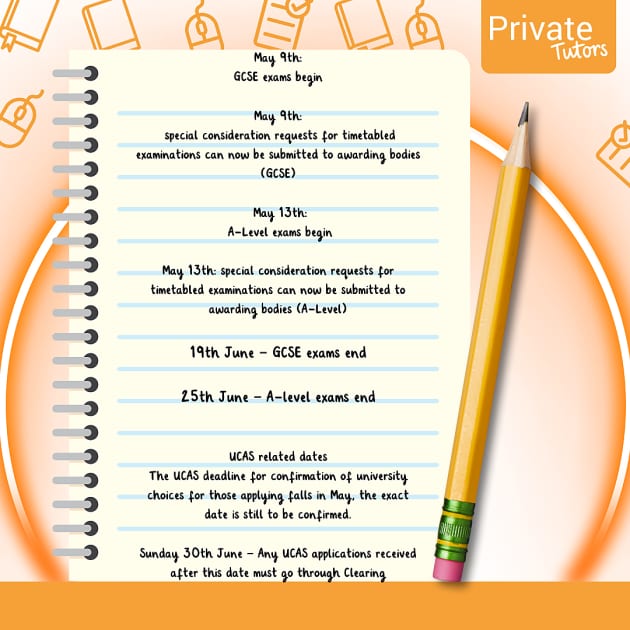 Private
Tutors
May 9th:
GCSE exams begin
May 9th:
special consideration requests for timetabled
examinations can now be submitted to awarding bodies
(GCSE)
May 13th:
A-Level exams begin
May 13th: special consideration requests for
timetabled examinations can now be submitted to
awarding bodies (A-Level)
19th June - GCSE exams end
25th June - A-level exams end
UCAS related dates
The UCAS deadline for confirmation of university
choices for those applying falls in May, the exact
date is still to be confirmed.
Sunday 30th June - Any UCAS applications received
after this date must go through Clearing